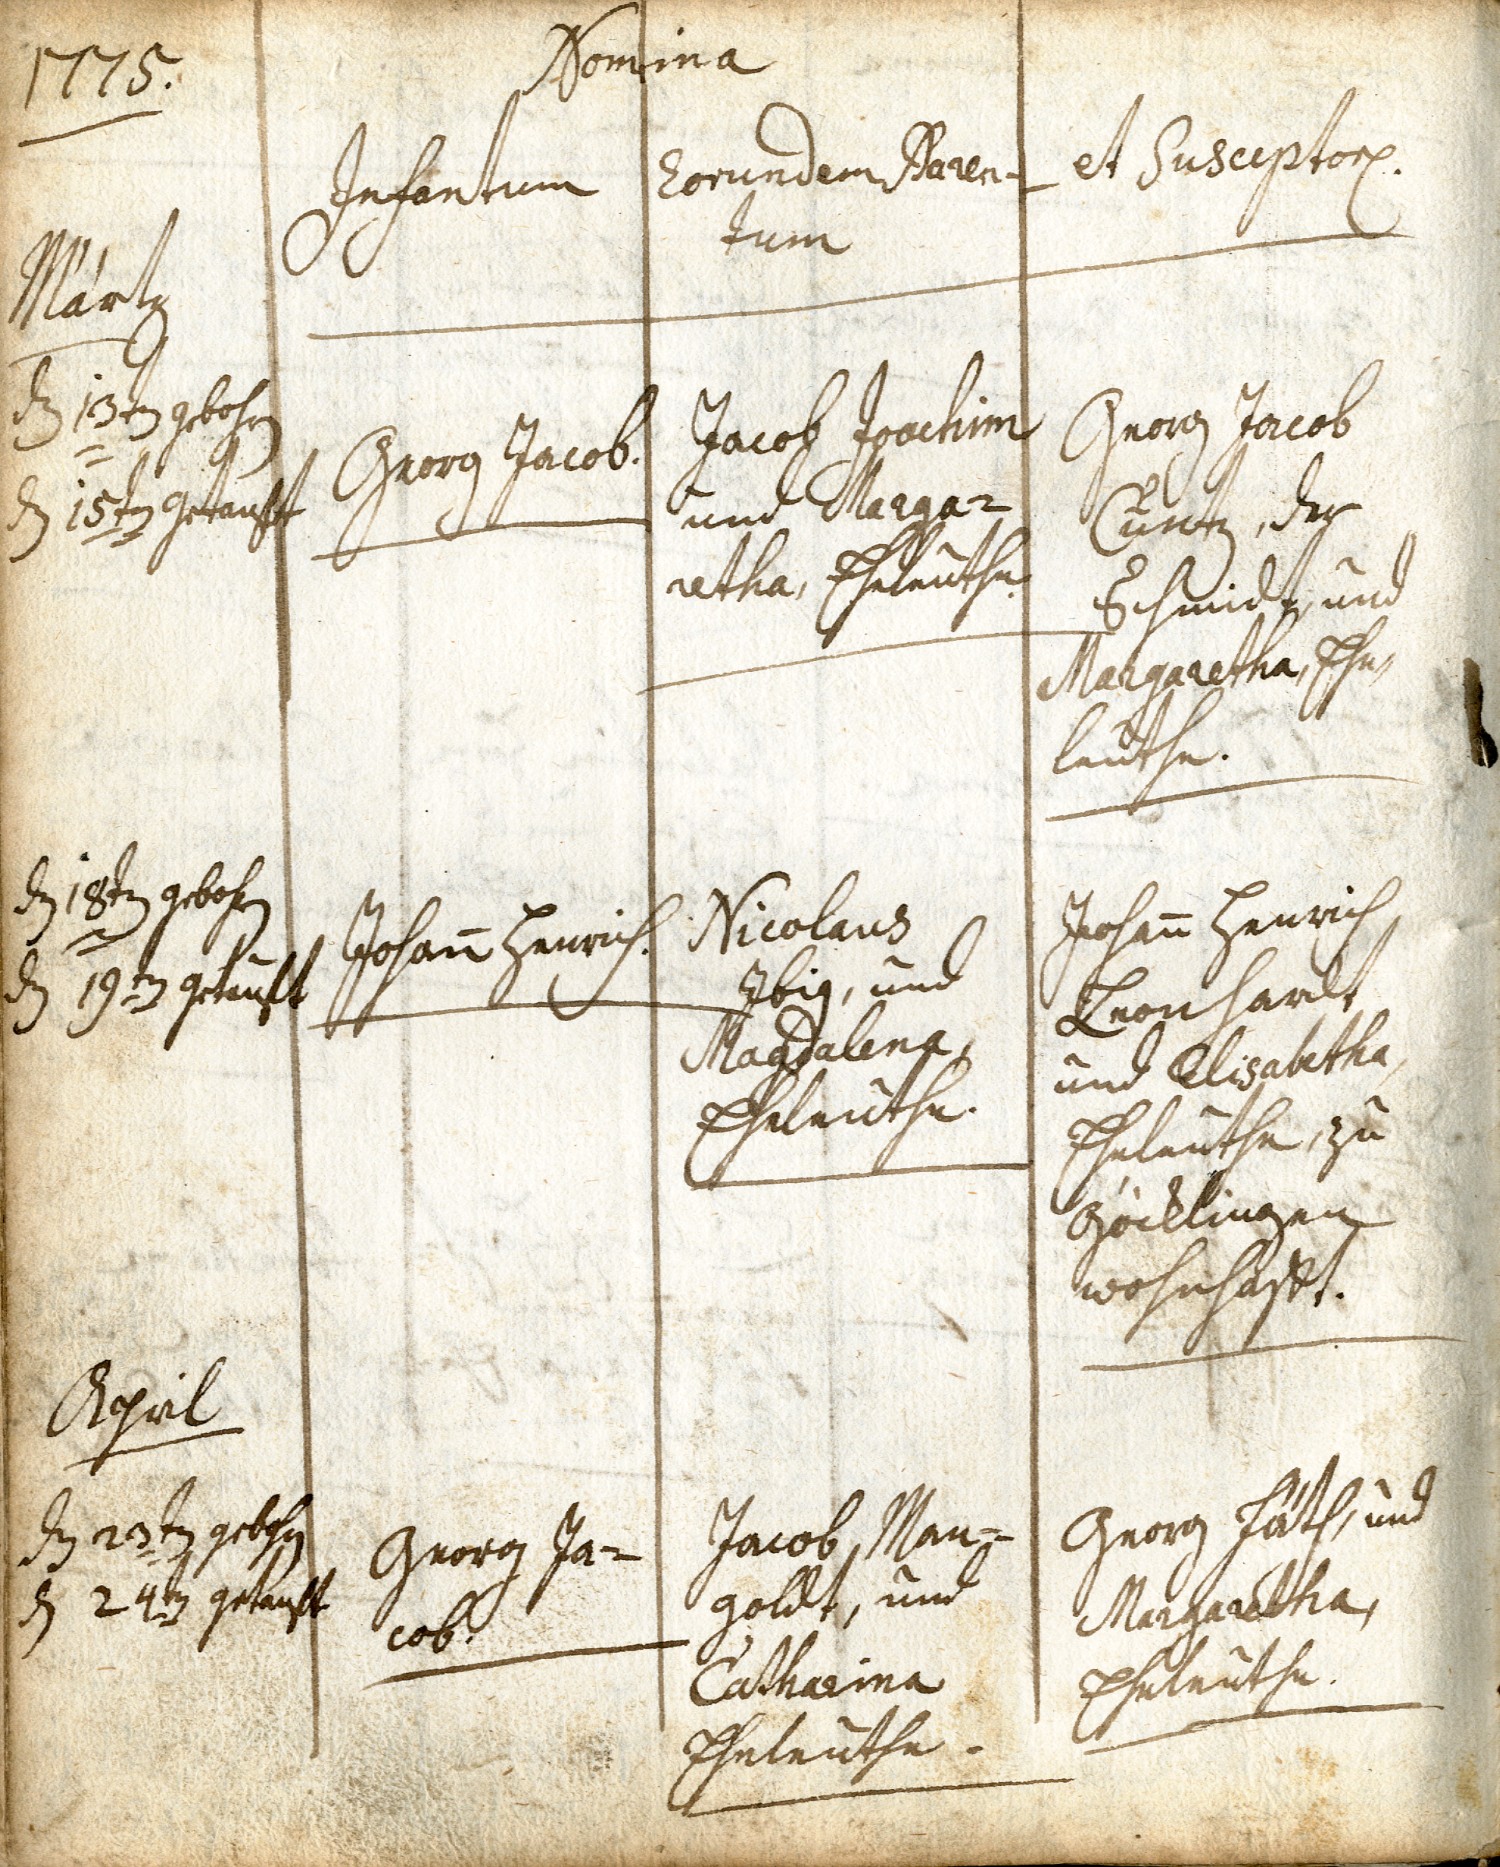 1775.
Nomina
Infantum
Eorundem Paren-
tum
et Susceptor.
Märtz
d. 13ten gebohren
d. 15ten getaufft
Georg Jacob.
Jacob Joachim
und Marga-
retha, Eheleuthe.
Georg Jacob
Cuntz, der
Schmidt, und
Margaretha, Ehe-
leuthe.
den 18ten gebohren
den 19ten getaufft
Johann Henrich.
Nicolaus
Ibig, und
Magdalena,
Eheleuthe.
Johann Henrich
Leonhardt
und Elisabetha,
Eheleuthe, zu
Göcklingen
wohnhafft.
April
den 23ten gebohren
d. 24ten getaufft
Georg Ja-
cob.
Jacob Man-
goldt, und
Catharina
Eheleuthe.
Georg Fäth, und
Margaretha,
Eheleuthe.